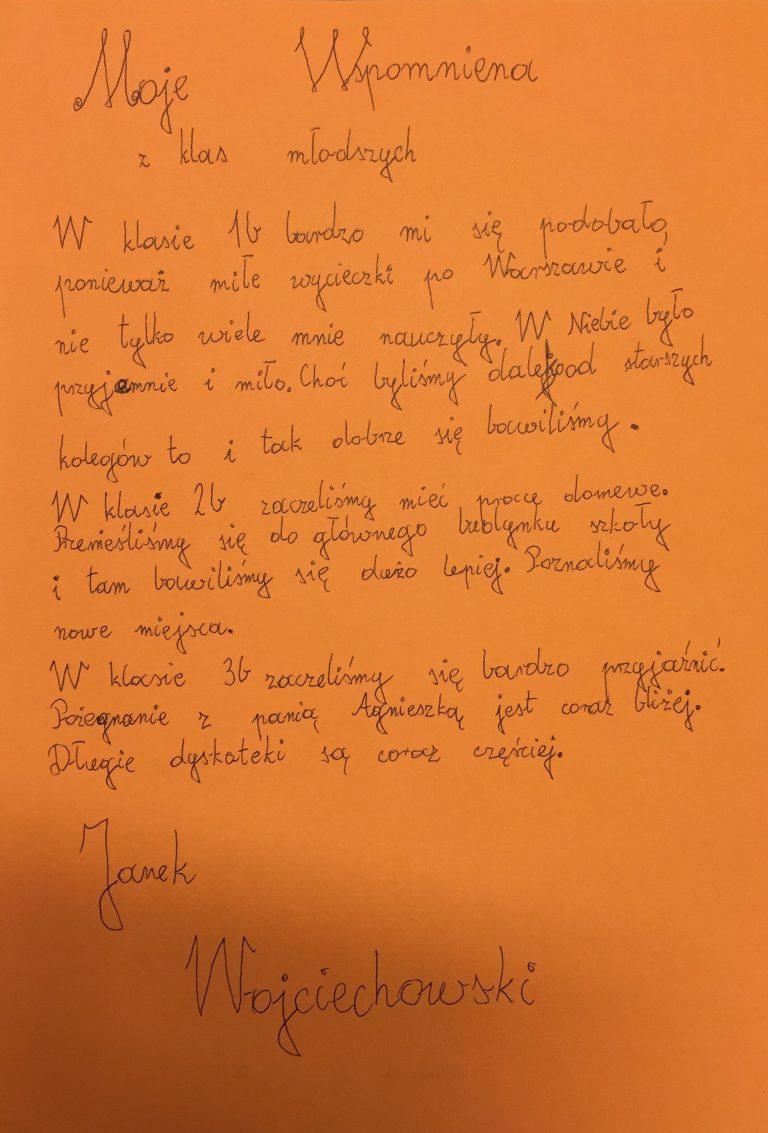 Moje Wspomniena
z klas młodszych
W klasie 1b bardzo mi się podobało,
ponieważ miłe wycieczki po Warszawie i
nie tylko wiele mnie nauczyły. W Niebie było
przyjemnie i miło. Choć byliśmy dalej od starszych
kolegów to i tak dobrze się bawiliśmy.
W klasie 2b zaczeliśmy mieć pracę domowe.
Przenieśliśmy się do głównego budynku szkoły
i tam bawiliśmy się dużo lepiej. Poznaliśmy
nowe miejsca.
W klasie 3b zaczeliśmy się bardzo przyjaźnić.
Pożegnanie z panią Agnieszką jest coraz bliżej.
Długie dyskoteki są coraz częściej.
Janek
Wojciechowski